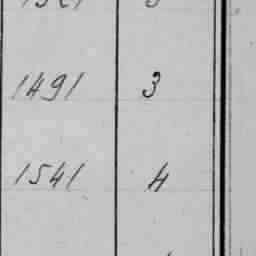 1491 3
1541 4